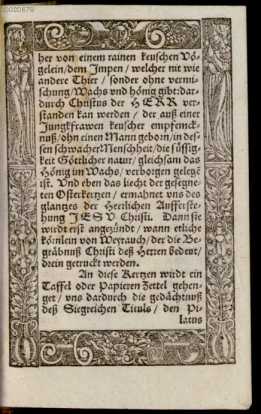 her von einem rainen keuschen Vö-
gelein/dem Impen/ welcher nit wie
andere Thier / sonder ohne vermi-
schung/Wachs vnd hönig gibt:dar-
durch Christus der HERR ver-
standen kan werden / der auß einer
Jungkfrawen keuscher empfenck-
nuß/ohn einen Mann geborn/in des-
sen schwacher Menschheit/die süssig-
keit Göttlicher natur/ gleichsam das
Hönig im Wachs/ verborgen gelegẽ
ist. Vnd eben das liecht der gesegne-
ten Osterkertzen / ermahnet vns des
glantzes der Herrlichen Aufferste-
hung IESV Christi. Dann sie
wirdt erst angezündt / wann etliche
körnlein von Weyrauch/ der die Be-
gräbnuß Christi deß Herren bedeut/
drein getruckt werden.
An diese Kertzen wirdt ein
Taffel oder Papieren Zettel gehen-
get / vns dardurch die gedächtnuß
deß Siegreichen Tituls / den Pi-
latus